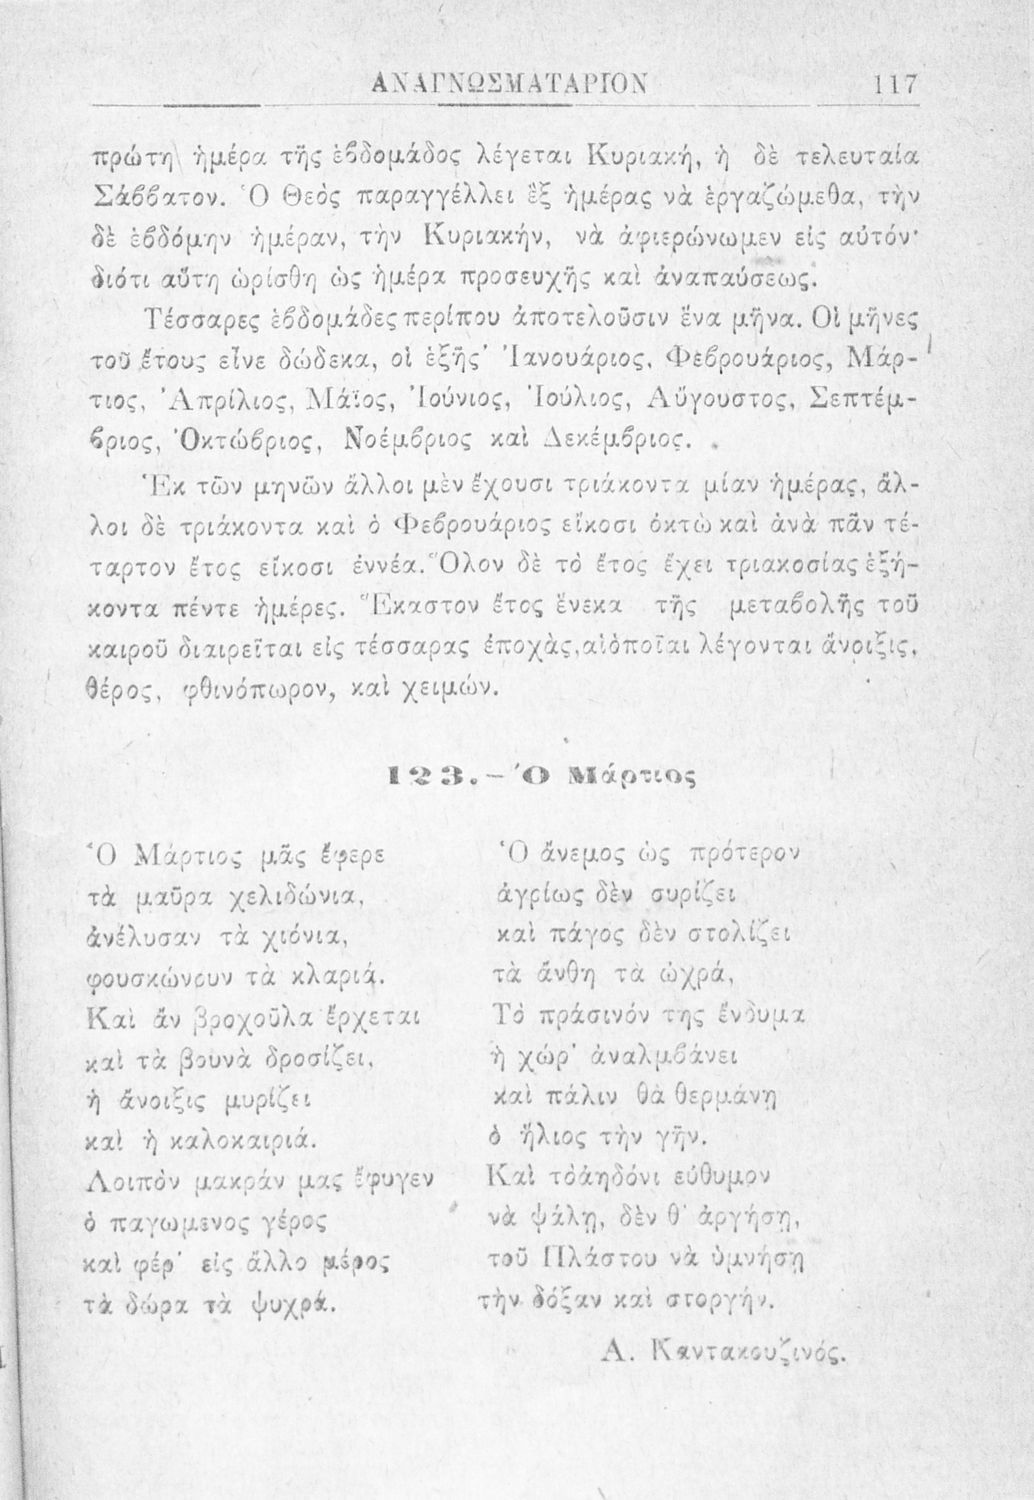 ΑΝΑΓΝΩΣΜΑΤΑΡΙΟΝ 117
πρώτη ἡμέρα τῆς ἑβδομάδος λέγεται Κυριακή, ἡ δὲ τελευταία
Σάββατον. Ὁ Θεὸς παραγγέλλει ἓξ ἡμέρας νὰ ἐργαζώμεθα, τὴν
δὲ ἑβδόμην ἡμέραν, τὴν Κυριακήν, νὰ ἀφιερώνωμεν εἰς αὐτόν·
διότι αὕτη ὡρίσθη ὡς ἡμέρα προσευχῆς καὶ ἀναπαύσεως.
Τέσσαρες ἑβδομάδες περίπου ἀποτελοῦσιν ἕνα μῆνα. Οἱ μῆνες
τοῦ ἔτους εἶνε δώδεκα, οἱ ἑξῆς· Ἰανουάριος, Φεβρουάριος, Μάρ-
τιος, Ἀπρίλιος, Μάϊος, Ἰούνιος, Ἰούλιος, Αὔγουστος, Σεπτέμ-
βριος, Ὀκτώβριος, Νοέμβριος καὶ Δεκέμβριος.
Ἐκ τῶν μηνῶν ἄλλοι μὲν ἔχουσι τριάκοντα μίαν ἡμέρας, ἄλ-
λοι δὲ τριάκοντα καὶ ὁ Φεβρουάριος εἴκοσι ὀκτὼ καὶ ἀνὰ πᾶν τέ-
ταρτον ἔτος εἴκοσι ἐννέα. Ὅλον δὲ τὸ ἔτος ἔχει τριακοσίας ἑξή-
κοντα πέντε ἡμέρες. Ἕκαστον ἔτος ἕνεκα τῆς μεταβολῆς τοῦ
καιροῦ διαιρεῖται εἰς τέσσαρας ἐποχὰς, αἱ ὁποῖαι λέγονται ἄνοιξις,
θέρος, φθινόπωρον, καὶ χειμών.
123.—Ὁ Μάρτιος
Ὁ Μάρτιος μᾶς ἔφερε
τὰ μαῦρα χελιδώνια,
ἀνέλυσαν τὰ χιόνια,
φουσκώνουν τὰ κλαριά.
Καὶ ἄν βροχοῦλα ἔρχεται
καὶ τὰ βουνὰ δροσίζει,
ἡ ἄνοιξις μυρίζει
καὶ ἡ καλοκαιριά.
Λοιπὸν μακράν μας ἔφυγεν
ὁ παγωμενος γέρος
καὶ φέρ' εἰς ἄλλο μέρος
τὰ δώρα τὰ ψυχρά.
Ὁ ἄνεμος ὡς πρότερον
ἀγρίως δὲν συρίζει
καὶ πάγος δὲν στολίζει
τὰ ἄνθη τὰ ὠχρά,
Τὸ πράσινόν της ἔνδυμα
ἡ χώρ' ἀναλμβάνει
καὶ πάλιν θὰ θερμάνῃ
ὁ ἥλιος τὴν γῆν.
Καὶ τὸ ἀηδόνι εὔθυμον
νὰ ψάλῃ, δὲν θ' ἀργήσῃ,
τοῦ Πλάστου νὰ ὑμνήσῃ
τὴν δόξαν καὶ στοργήν.
Α. Καντακουζινός.